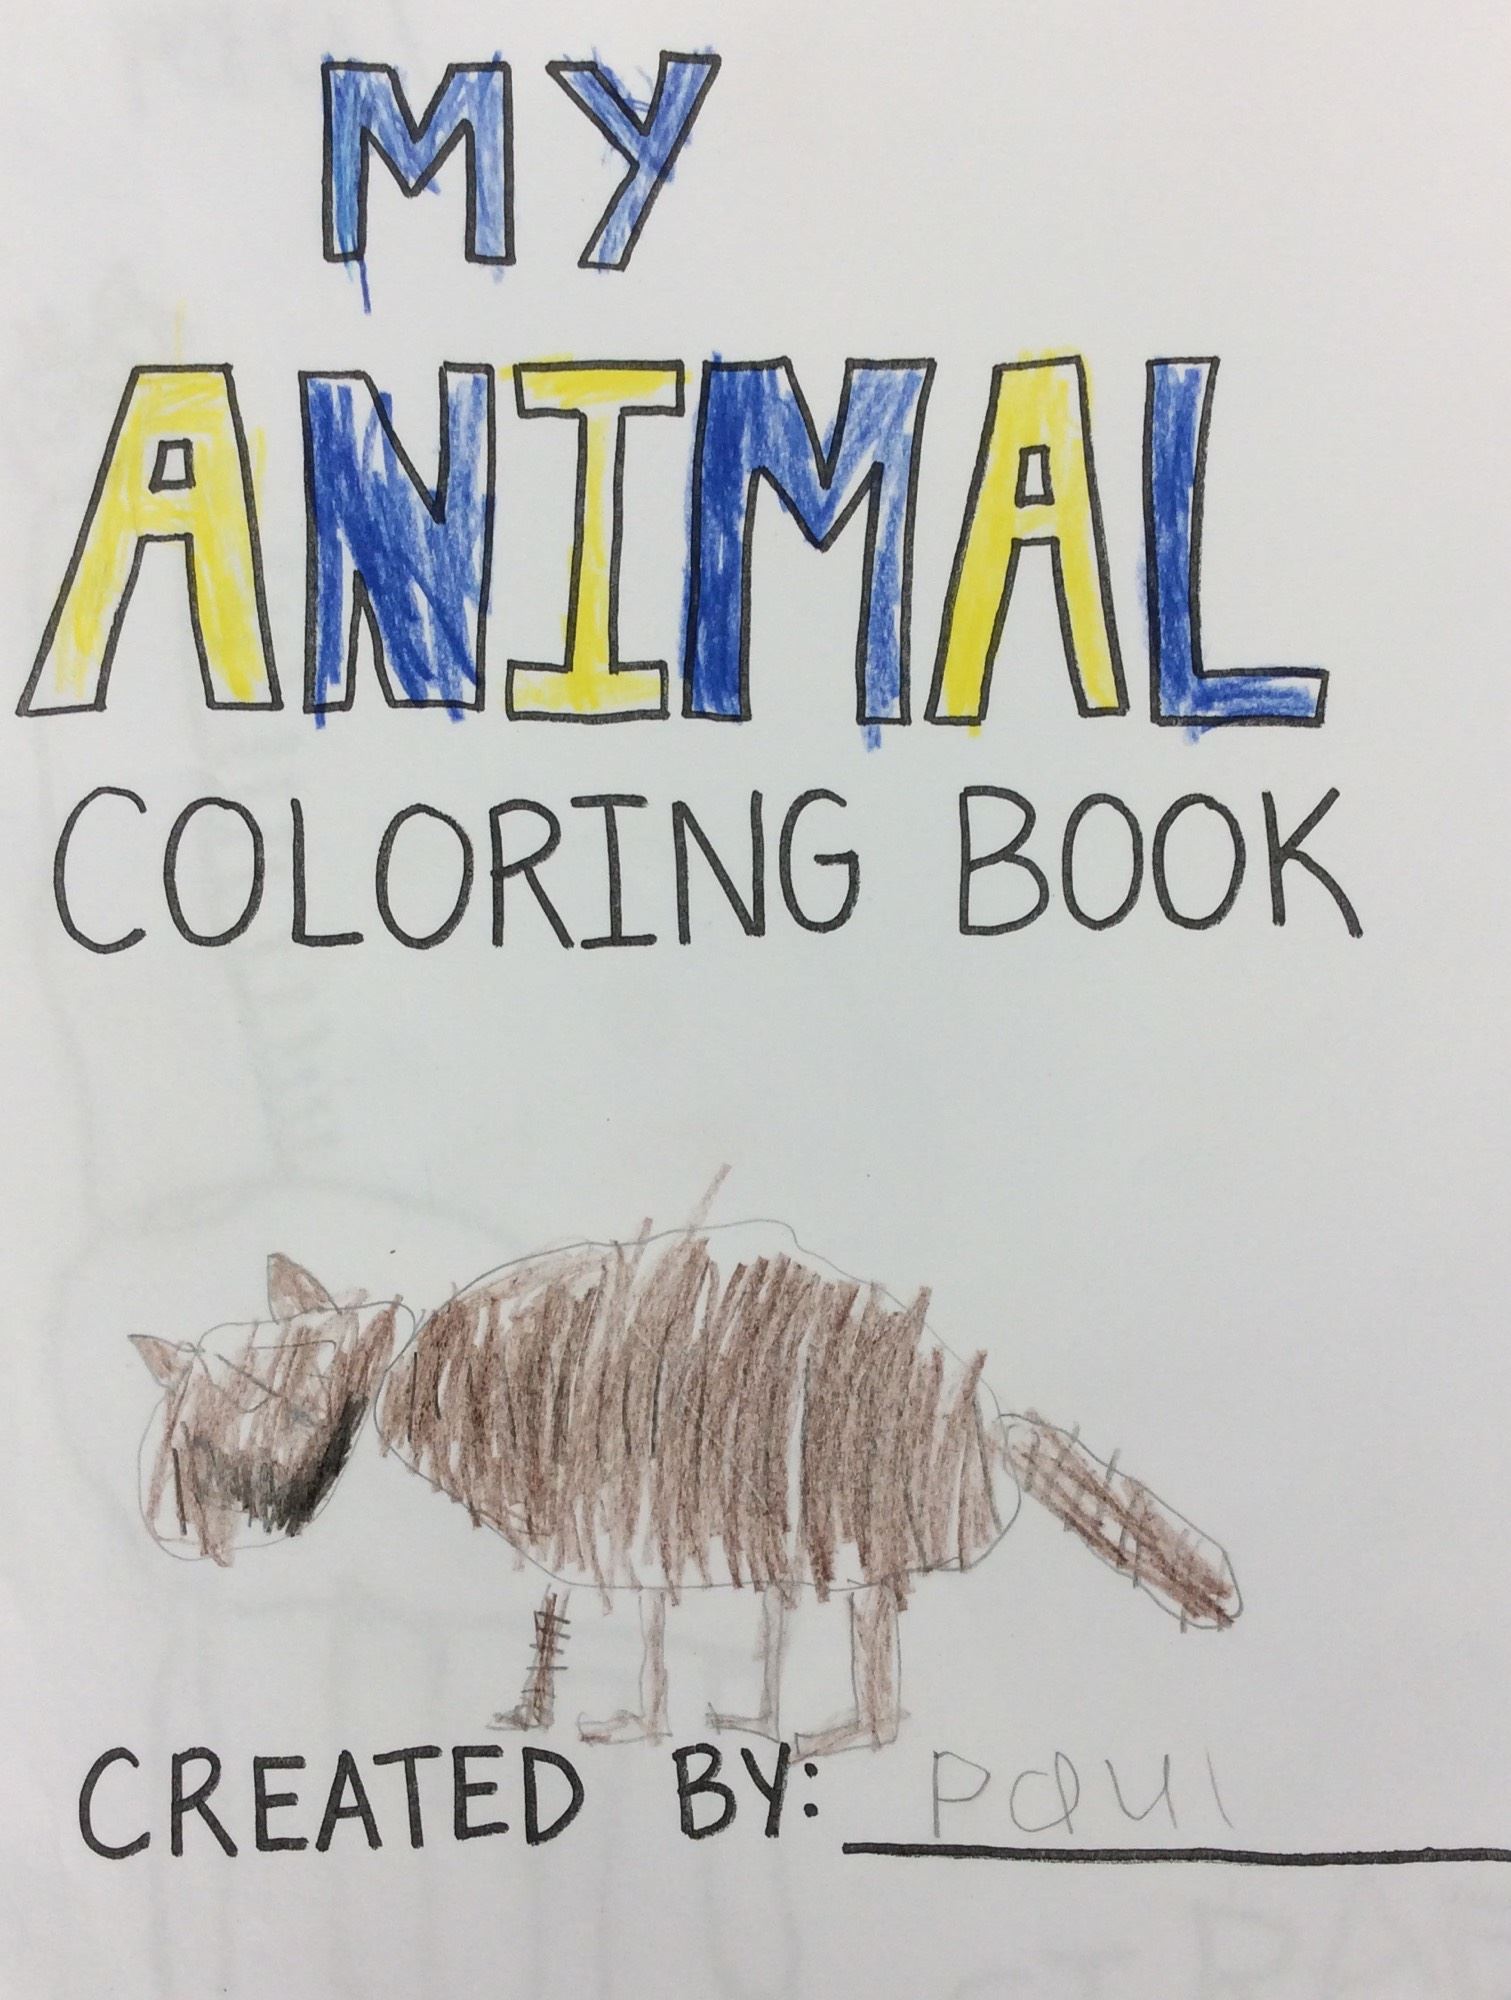 MY
ANIMAL
COLORING BOOK
CREATED BY: Paul